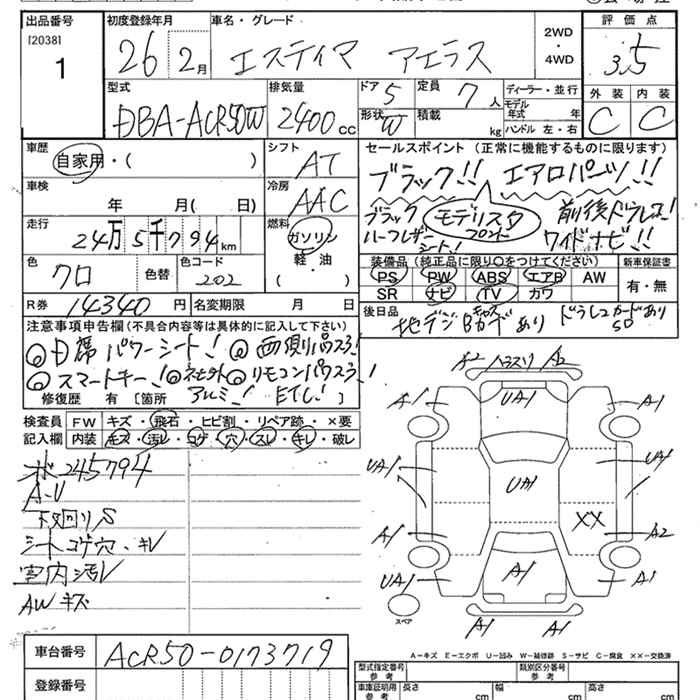 出品番号
[2038]
1
初度登録年月
26 2月
車名・グレード
エスティマ アエラス
2WD
・
4WD
評価点
3.5
型式
DBA-ACR50W
排気量
2400cc
ドア 5
形状 W
定員 7人
積載 kg
ディーラー・並行
モデル年式 年
ハンドル 左・右
外装 C
内装 C
車歴
自家用・( )
シフト
AT
車検
年 月( 日)
冷房
AAC
走行
24万5千794km
燃料
ガソリン
軽・油
( ・ )
色
クロ
色替
色コード
202
R券 14340円
名変期限 月 日
セールスポイント(正常に機能するものに限ります)
ブラック!! エアロパーツ!!
ブラック
ハーフレザー
シート!
モデリスタ
フロント
前後ドラレコ!
ワイドナビ!!
装備品(純正品に限り○をつけてください)
PS PW ABS エアB AW
SR ナビ TV カワ
新車保証書
有・無
後日品
地デジBカード あり ドラレコ カードあり
SD
注意事項申告欄(不具合内容等は具体的に記入して下さい)
◎日席 パワーシート! ◎両側パスラ!
◎スマートキー! ◎ネセ外 ◎リモコンパワスラ!
アルミ! ETC!
修復歴 有 [箇所
検査員記入欄
FW キズ・飛石・ヒビ割・リペア跡・×要
内装 キズ・汚レ・コゲ・穴・スレ・キレ・破レ
ボ 245794
A-U
下回りS
シートコゲ穴・キレ
室内汚レ
AWキズ
A2 ハラスリ A2
A1 UA1 A1
UA1 UA1 UA1
XX
A1 A2
UA1 A1 A1
A1 A1
スペア
A-キズ E-エクボ U-凹み W-補修跡 S-サビ C-腐食 XX-交換済
車台番号
ACR50-0173719
登録番号
型式指定番号
参考
類別区分番号
参考
車庫証明用
参考
長さ cm
幅 cm
高さ cm